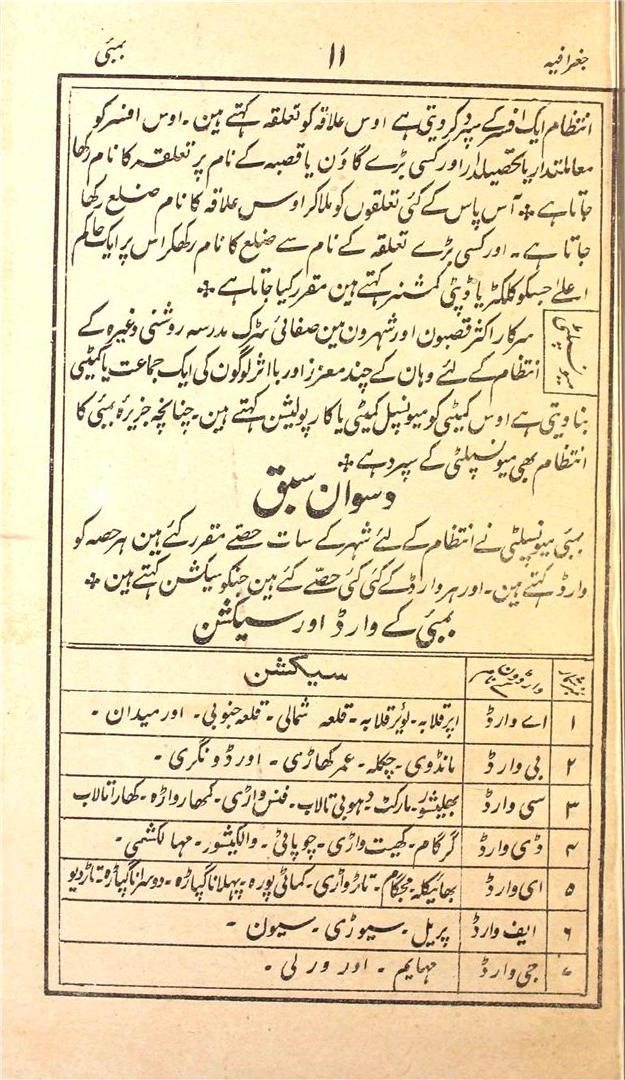 جغرافیہ ۱۱ بمبئی
انتظام ایک افسر کے سپرد کردیتی ہے اوس علاقہ کو تعلقہ کہتے ہین ۔ اوس افسر کو
معاملتدار یا تحصیلدار اور کسی بڑے گاؤن یا قصبہ کے نام پر تعلقہ کا نام رکھا
جاتا ہے ٭ آس پاس کے کئی تعلقوں کو ملا کر اوس علاقہ کا نام ضلع رکھا
جاتا ہے ۔ اور کسی بڑے تعلقہ کے نام سے ضلع کا نام رکھکر اس پر ایک حاکم
اعلےٰ جسکو کلکٹر یا ڈپٹی کمشنر کہتے ہین مقرر کیا جاتا ہے ٭
میونسپلٹی
سرکار اکثر قصبون اور شہرون مین صفائی سڑک مدرسہ روشنی وغیرہ کے
انتظام کے لئے وہان کے چند معزز اور بااثر لوگون کی ایک جماعت یا کمیٹی
بنا دیتی ہے اوس کمیٹی کو میونسپل کمیٹی یا کارپولیشن کہتے ہین ۔ چنانچہ جزیرۂ بمبئی کا
انتظام بھی میونسپلٹی کے سپرد ہے ٭
دسوان سبق
بمبئی میونسپلٹی نے انتظام کے لئے شہر کے سات حصے مقرر کئے ہین ہر حصہ کو
وارڈ کہتے ہین ۔ اور ہر وارڈ کے کئی کئی حصّے کئے گئے ہین جنکو سیکشن کہتے ہین ٭
بمبئی کے وارڈ اور سیکشن
نمبر شمار وارڈون کے نام سیکشن
۱ اے وارڈ اپر قلابہ ۔ لوئر قلابہ ۔ قلعہ شمالی ۔ قلعہ جنوبی ۔ اور میدان ۔
۲ بی وارڈ مانڈوی ۔ چکلہ ۔ عمر کھاڑی ۔ اور ڈونگری ۔
۳ سی وارڈ بھلیشور ۔ مارکٹ ۔ دہوبی تالاب ۔ فنس واڑی ۔ کمھار واڑہ ۔ کھارا تالاب
۴ ڈی وارڈ گرگام ۔ کھیت واڑی ۔ چوپاٹی ۔ والکیشور ۔ مہا لکشمی ۔
۵ ای وارڈ بھائیکلہ ۔ مجگام ۔ تاڑ واڑی ۔ کماٹی پورہ ۔ پہلا ناگپاڑہ ۔ دوسرا ناگپاڑہ ۔ تاڑدیو
۶ ایف وارڈ پریل ۔ سیوڑی ۔ سیون ۔
۷ جی وارڈ مہایم ۔ اور ورلی ۔